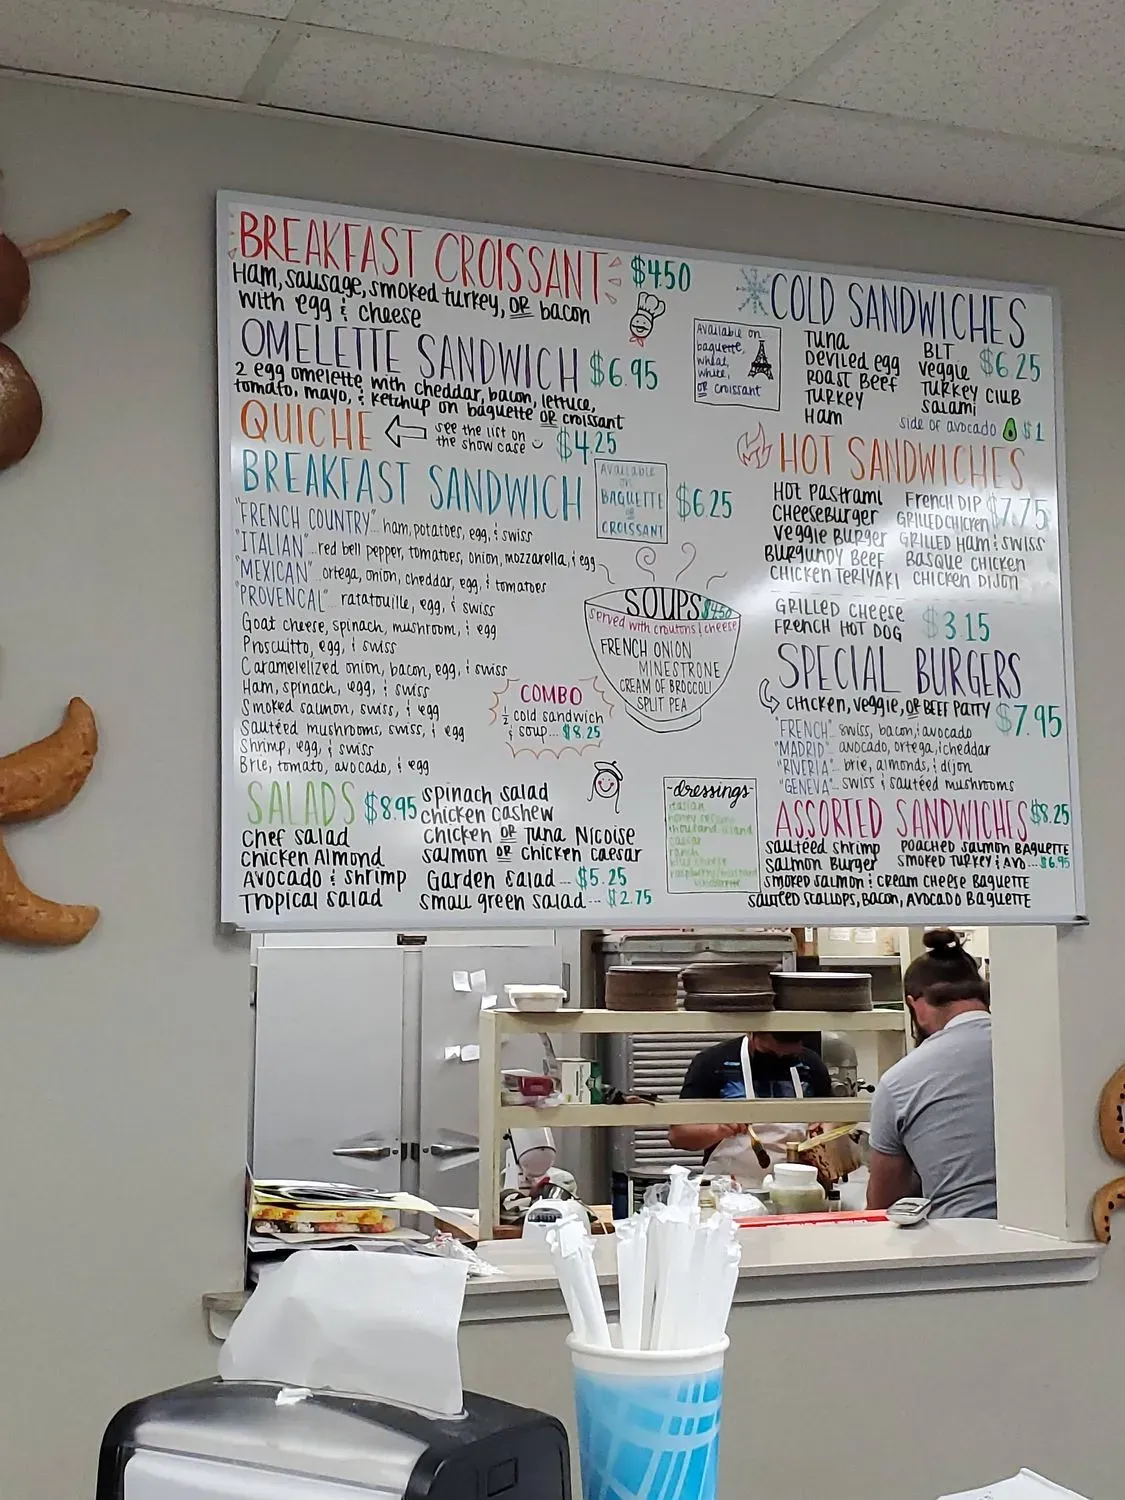 BREAKFAST CROISSANT $4.50
Ham, sausage, smoked turkey, OR bacon
with egg & cheese
OMELETTE SANDWICH $6.95
2 egg omelette with cheddar, bacon, lettuce,
tomato, mayo, & ketchup on baguette OR croissant
QUICHE
see the list on
the show case
$4.25
BREAKFAST SANDWICH
Available
on
BAGUETTE
OR
CROISSANT
$6.25
"FRENCH COUNTRY"... ham, potatoes, egg, & swiss
"ITALIAN"... red bell pepper, tomatoes, onion, mozzarella, & egg
"MEXICAN"... ortega, onion, cheddar, egg, & tomatoes
"PROVENCAL"... ratatouille, egg, & swiss
Goat cheese, spinach, mushroom, & egg
Proscuitto, egg, & swiss
Caramelelized onion, bacon, egg, & swiss
Ham, spinach, egg, & swiss
Smoked salmon, swiss, & egg
Sautéed mushrooms, swiss, & egg
Shrimp, egg, & swiss
Brie, tomato, avocado, & egg
SOUPS $4.50
served with croutons & cheese
FRENCH ONION
MINESTRONE
CREAM OF BROCCOLI
SPLIT PEA
COMBO
½ cold sandwich
& soup... $8.25
SALADS $8.95
Chef salad
Chicken Almond
Avocado & shrimp
Tropical salad
spinach salad
chicken cashew
Chicken OR Tuna Nicoise
salmon OR chicken caesar
Garden salad... $5.25
small green salad... $2.75
dressings
italian
honey sesame
thousand island
caesar
ranch
blue cheese
COLD SANDWICHES
Available on
baguette,
wheat,
white,
OR croissant
Tuna
Deviled egg
Roast Beef
Turkey
Ham
BLT
Veggie
Turkey Club
Salami
$6.25
side of avocado $1
HOT SANDWICHES
Hot Pastrami
Cheeseburger
Veggie Burger
Burgundy Beef
Chicken Teriyaki
French Dip
Grilled Chicken
Grilled Ham & Swiss
Basque Chicken
Chicken Dijon
$7.75
Grilled Cheese
French Hot Dog
$3.15
SPECIAL BURGERS
chicken, veggie, OR beef patty $7.95
"FRENCH"... swiss, bacon, & avocado
"MADRID"... avocado, ortega, & cheddar
"RIVERIA"... brie, almonds, & dijon
"GENEVA"... swiss & sautéed mushrooms
ASSORTED SANDWICHES $8.25
sautéed shrimp
salmon Burger
poached salmon Baguette
smoked turkey & avo... $6.95
smoked salmon & cream cheese Baguette
sautéed scallops, bacon, avocado Baguette